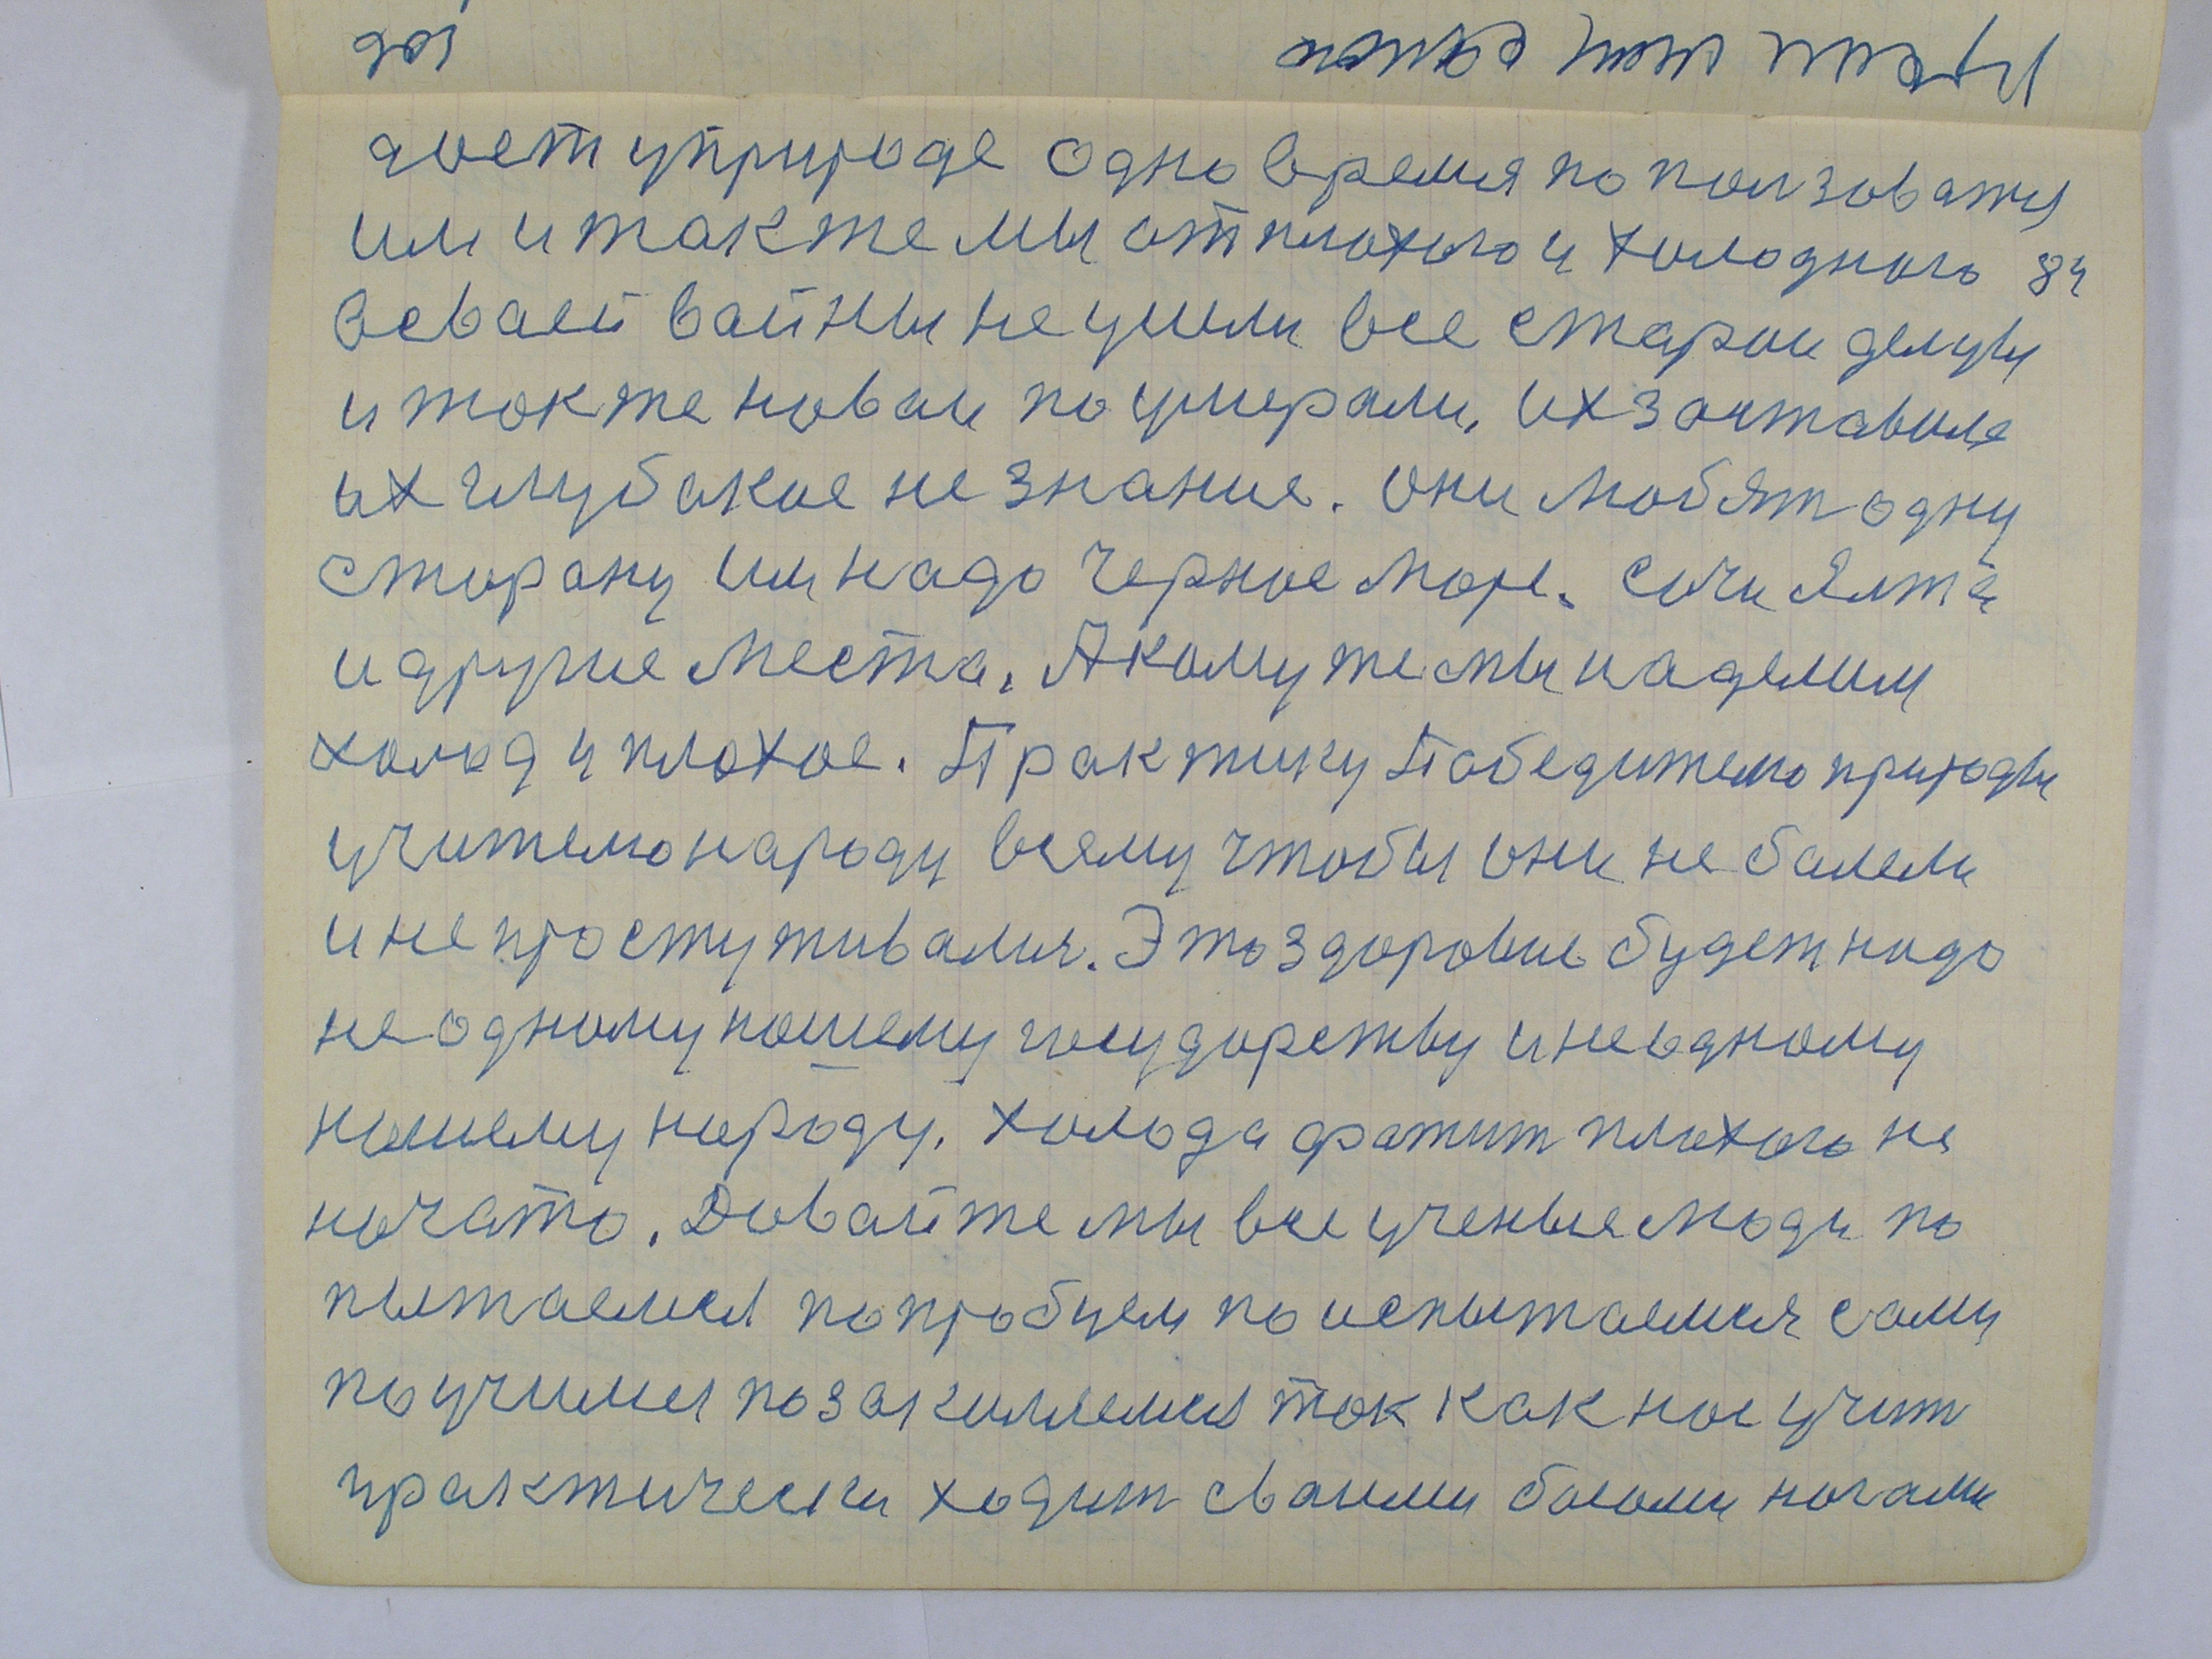 дает у природе одно время по пользоватся
им и также мы от плохого и холодного 84
всваей вайны не ушли все старои делцы
и также новаи по умерали, их заставила
их глубакое не знание. они любят одну
сторану им надо Черное море. сочи Ялта
и другие места. А кому же мы наделим
холод и плохое. Практику Победителю природы
учителю народу всему чтобы они не балели
и не простуживались. Это здоровье будет надо
не одному нашему государству и не одному
нашему народу. холода фатит плохого не
начато. Давайте мы все ученые люди по
пытаемся попробуем по испытаемся сами
поучимся позакиляемся так как нас учит
практически ходит сваими босыми ногами